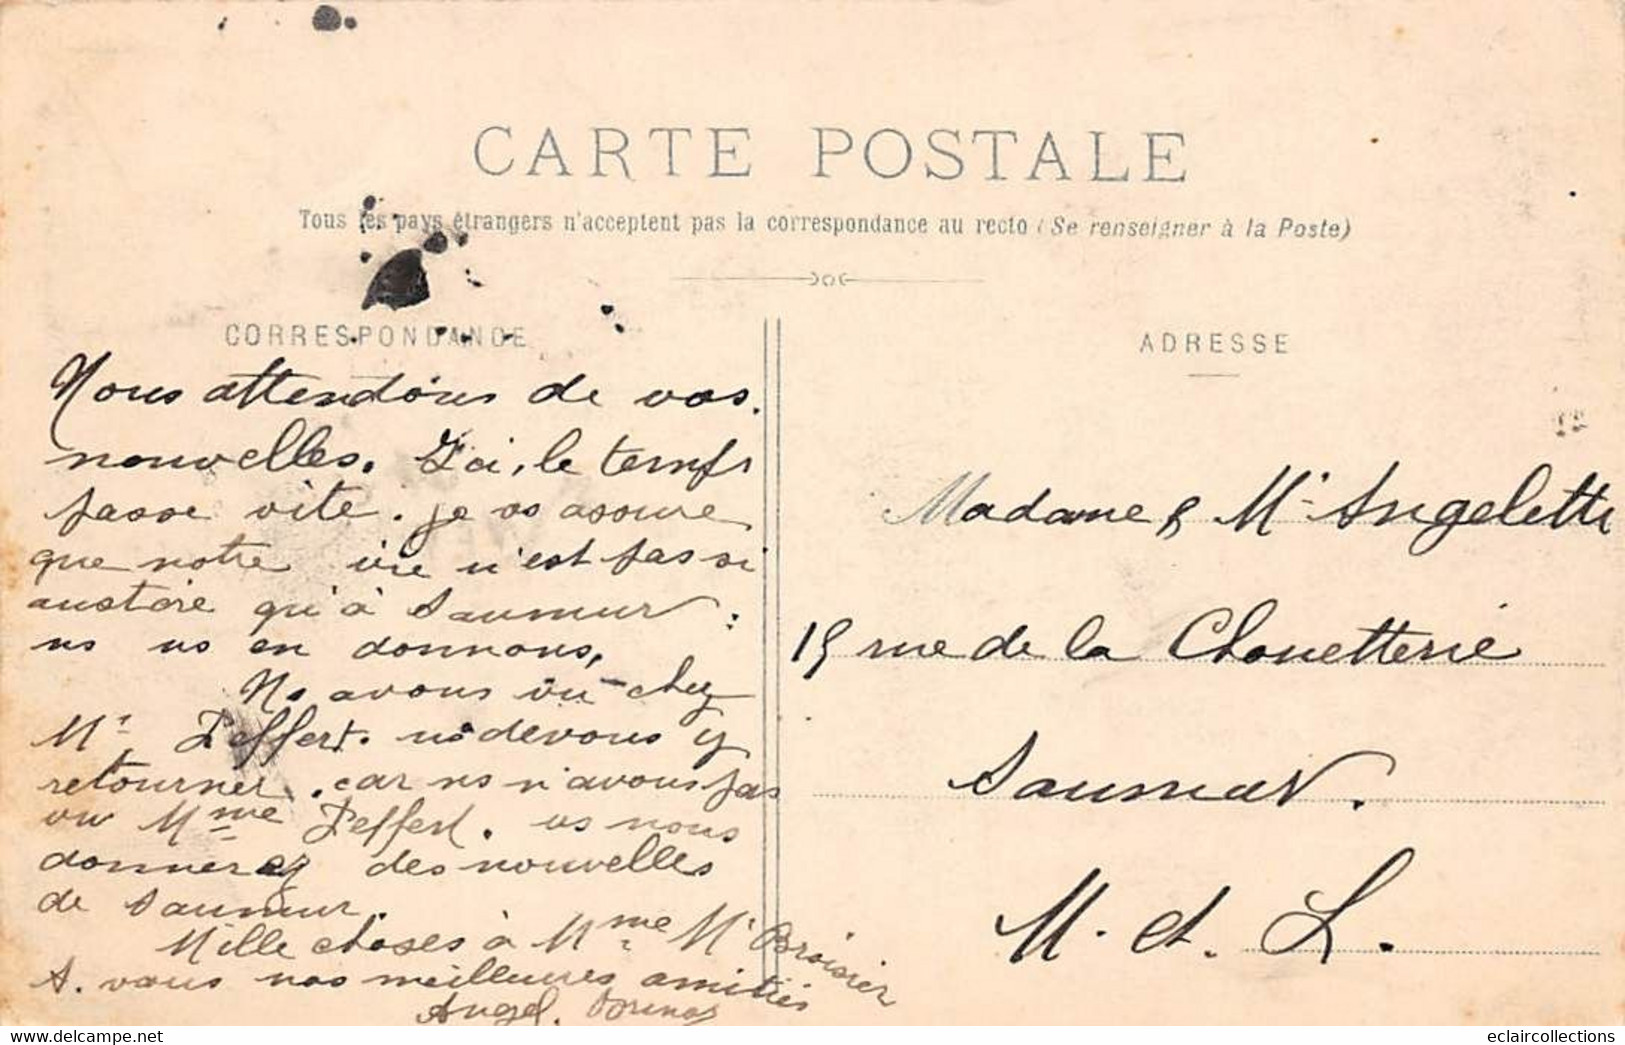 CARTE POSTALE
Tous les pays étrangers n'acceptent pas la correspondance au recto (Se renseigner à la Poste)
CORRESPONDANCE
Nous attendons de vos
nouvelles. Ici, le temps
passe vite. je vs assure
que notre vie n'est pas si
austère qu'à Saumur :
ns ns en donnons.
Ns avons vu chez
Mr Peffert. ns devons y
retourner. car ns n'avons pas
vu Mme Peffert. vs nous
donnerez des nouvelles
de Saumur.
Mille choses à Mme Mr Broisier
A. vous nos meilleures amitiés
Angel.
ADRESSE
Madame & Mr Angelette
15 rue de la Chouetterie
Saumur.
M. et. L.
www.delcampe.net
eclaircollections